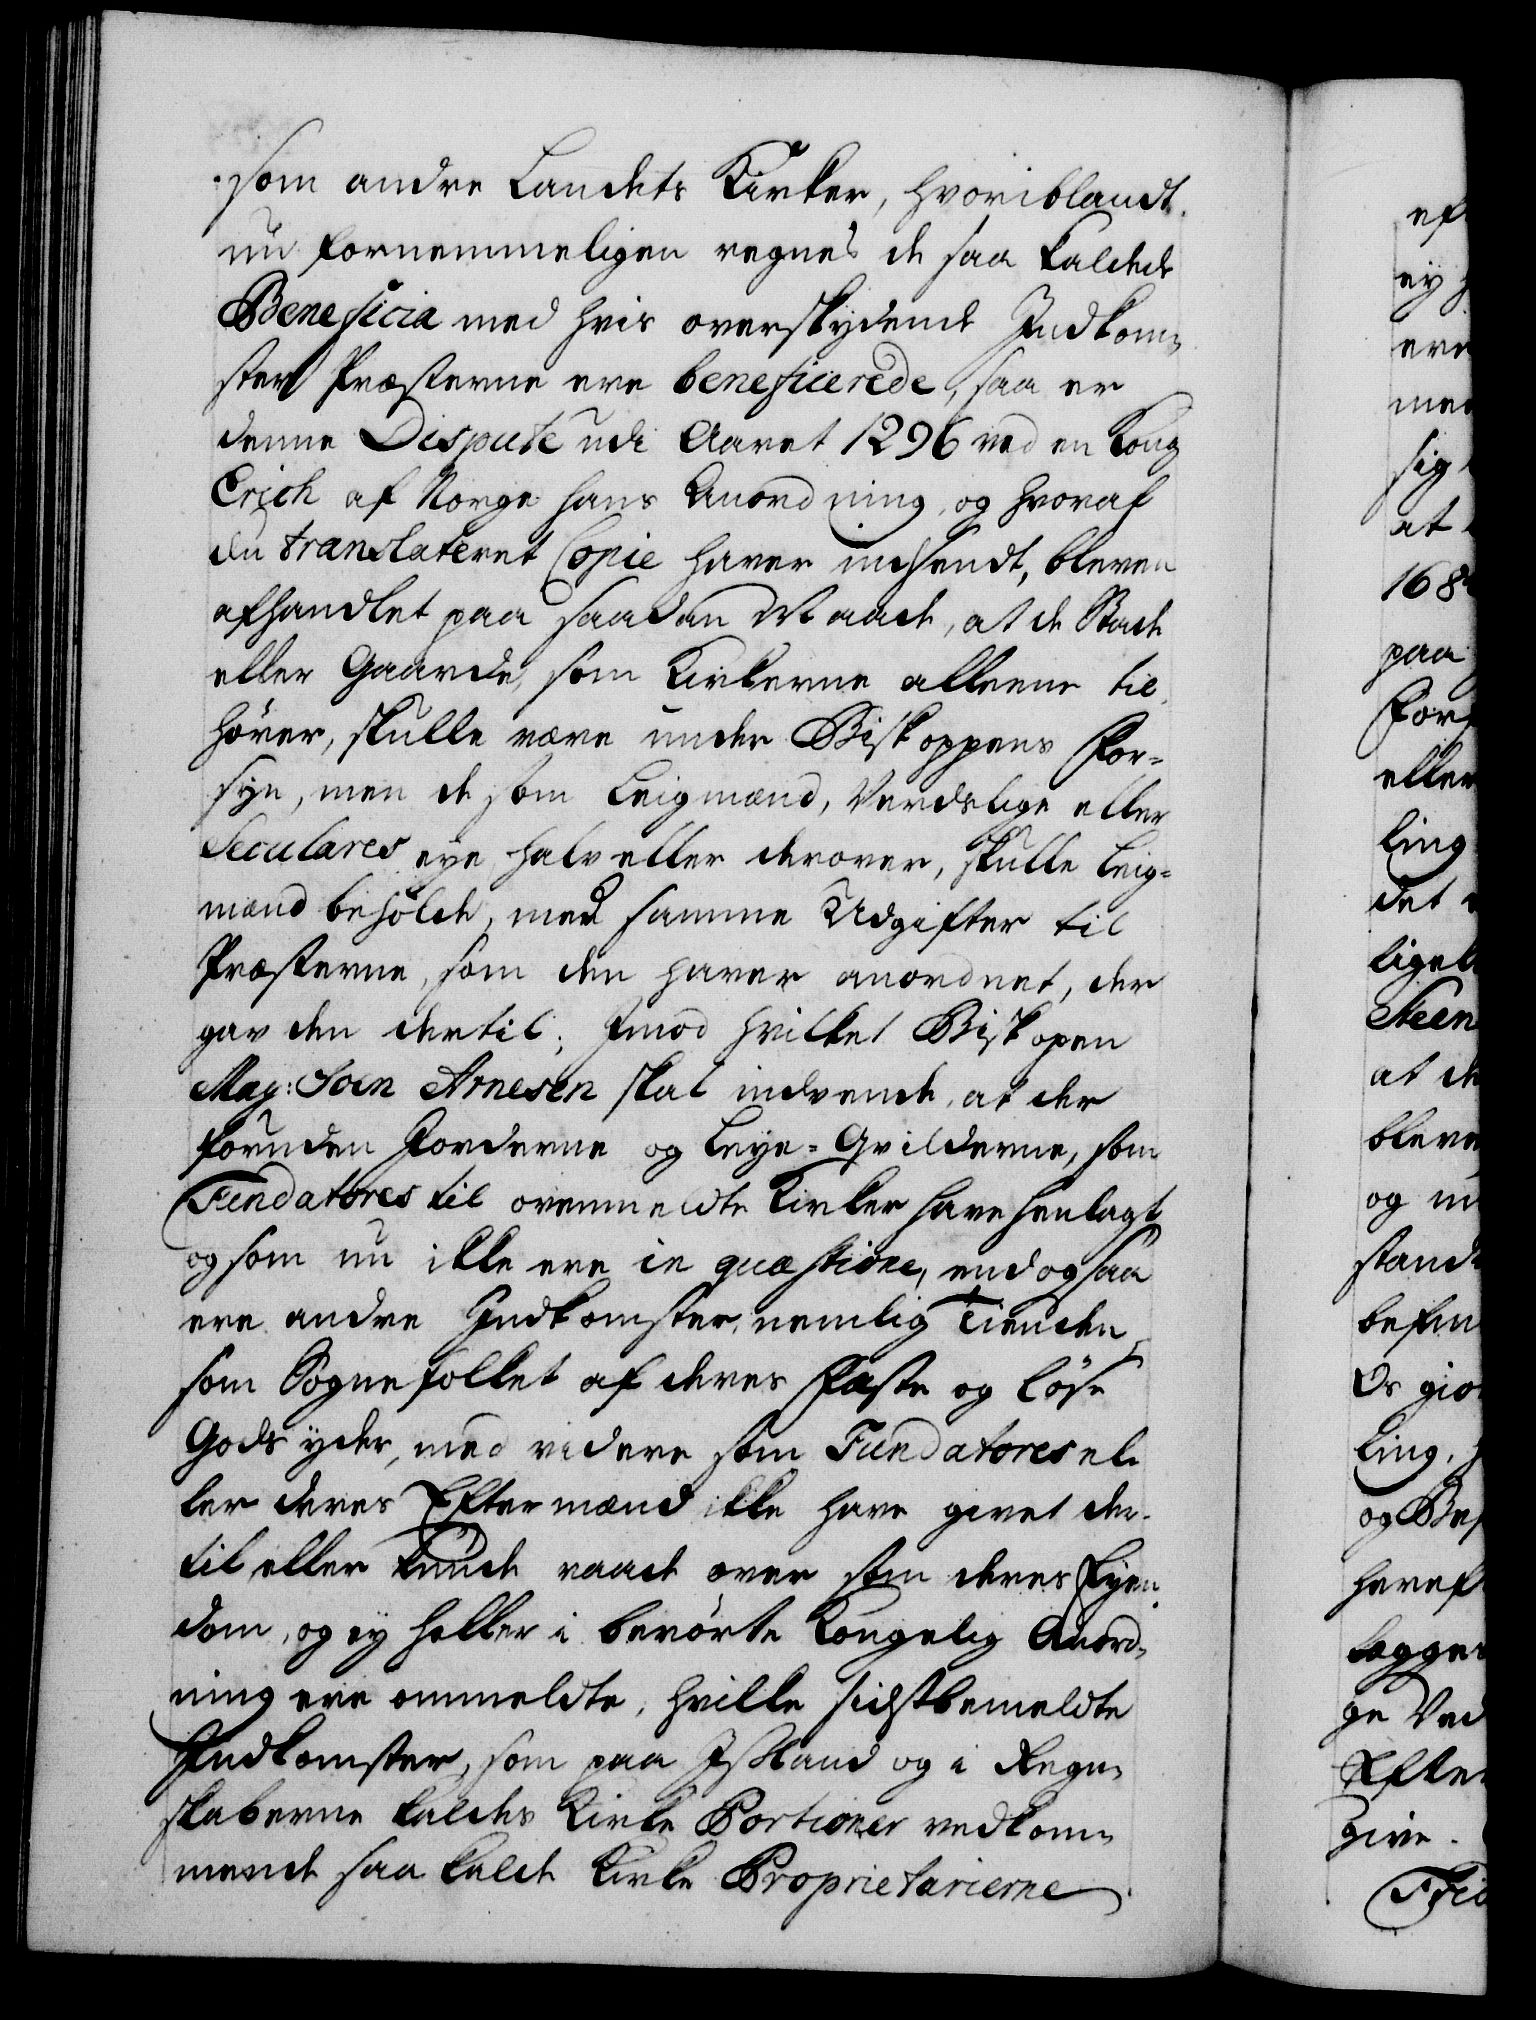 som andre Landets Kirker, hvoriblandt
nu fornemmeligen regnes de saa kaldede
Beneficia med hvis overskydende Indkom-
ster Præsterne ere beneficerede, saa er
denne Dispute udi Aaret 1296 ved en Kong
Erich af Norge hans Anordning, og hvoraf
du translateret Copie haver indsendt, bleven
afhandlet paa saadan Maade, at de Stæde
eller Gaarde, som Kirkerne alleene til
hörer, skulle være under Biskoppens For-
syn, men de som Leigmænd, Verdslige eller
Seculares eye halv eller derover, skulle Leig-
mænd beholde, med samme Udgifter til
Præsterne, som den haver anordnet, der
gav den dertil; Imod hvilket Biskopen
Mag: Joen Arnesen skal indvende, at der
foruden Jorderne og Leye-Qvilderne, som
Fundatores til ovenmeldte Kirker have henlagt
og som nu ikke ere in quæstione, endogsaa
ere andre Indkomster, nemlig Tienden,
som Sognefolket af deres Faste og löse
Gods yder, med videre som Fundatores el-
ler deres Eftermænd ikke have givet der-
til eller kunde raade over som deres Eyen-
dom, og ey heller i berörte Kongelig Anord-
ning ere ommeldte, hvilke sidstbemeldte
Indkomster, som paa Island og i Regn-
skaberne kaldes Kirke Portioner vedkom-
mende saa kaldede Kirke Proprietarierne
ef
ey
ere
sig
at
168
paa
eller
ling
det
at de
og
ling,
og
ge
give.